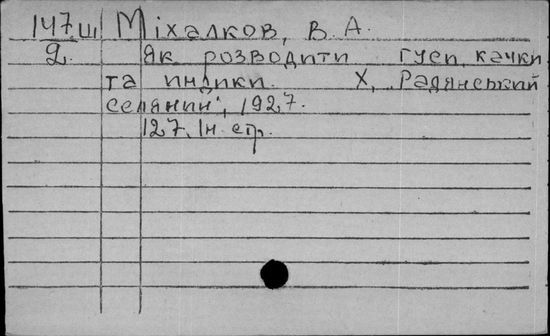 147.Ш Міхалков, В. А.
2. Як розводити гуси, качки
та индики. Х, Радянський
селянин, 1927.
127, Ін. стр.